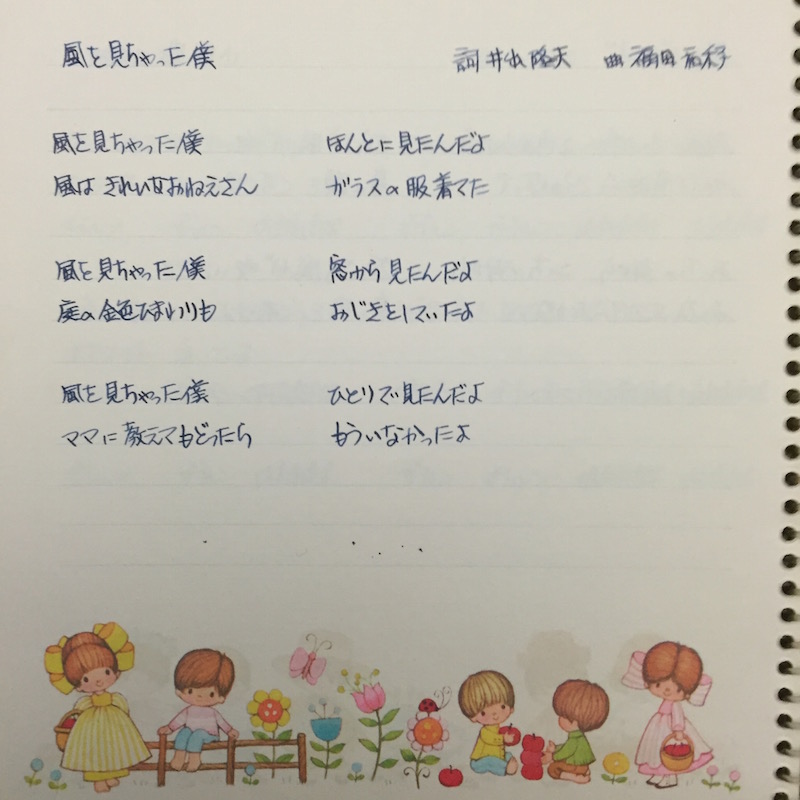 風を見ちゃった僕 詞 井出隆夫 曲 福田和禾子
風を見ちゃった僕 ほんとに見たんだよ
風は きれいなおねえさん ガラスの服着てた
風を見ちゃった僕 窓から見たんだよ
庭の金色ひまわりも おじぎをしていたよ
風を見ちゃった僕 ひとりで見たんだよ
ママに教えてもどったら もういなかったよ